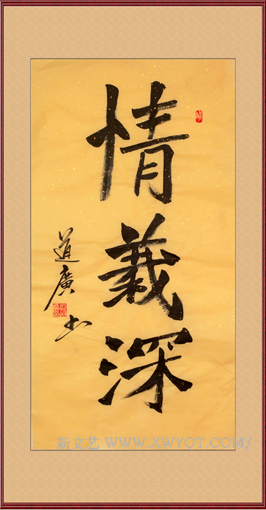 情義深
道廣书
新文艺 WWW.XWYOT.COM/